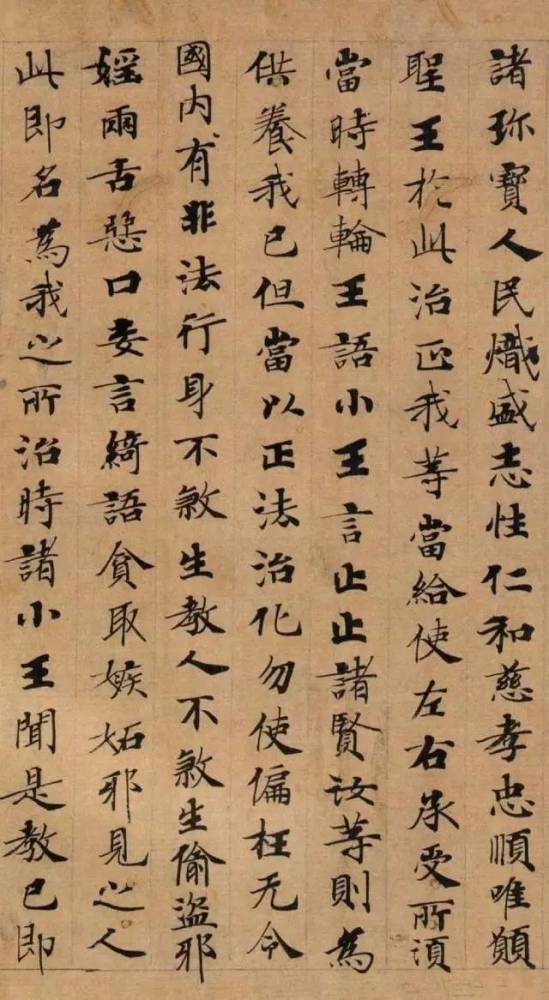 諸珎寳人民熾盛志性仁和慈孝忠順唯願
聖王於此治正我等當給使左右承受所湏
當時轉輪王語小王言止止諸賢汝等則為
供養我已但當以正法治化勿使偏枉无令
國内有非法行身不煞生教人不煞生偷盗邪
婬兩舌惡口妄言綺語貪取嫉妬邪見之人
此即名為我之所治時諸小王聞是教已即